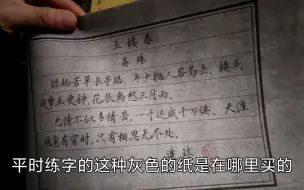 玉楼春
晏殊
绿杨芳草长亭路，年少抛人容易去。楼头
残梦五更钟，花底离愁三月雨。
无情不似多情苦，一寸还成千万缕。天涯
地角有穷时，只有相思无尽处。
平时练字的这种灰色的纸是在哪里买的